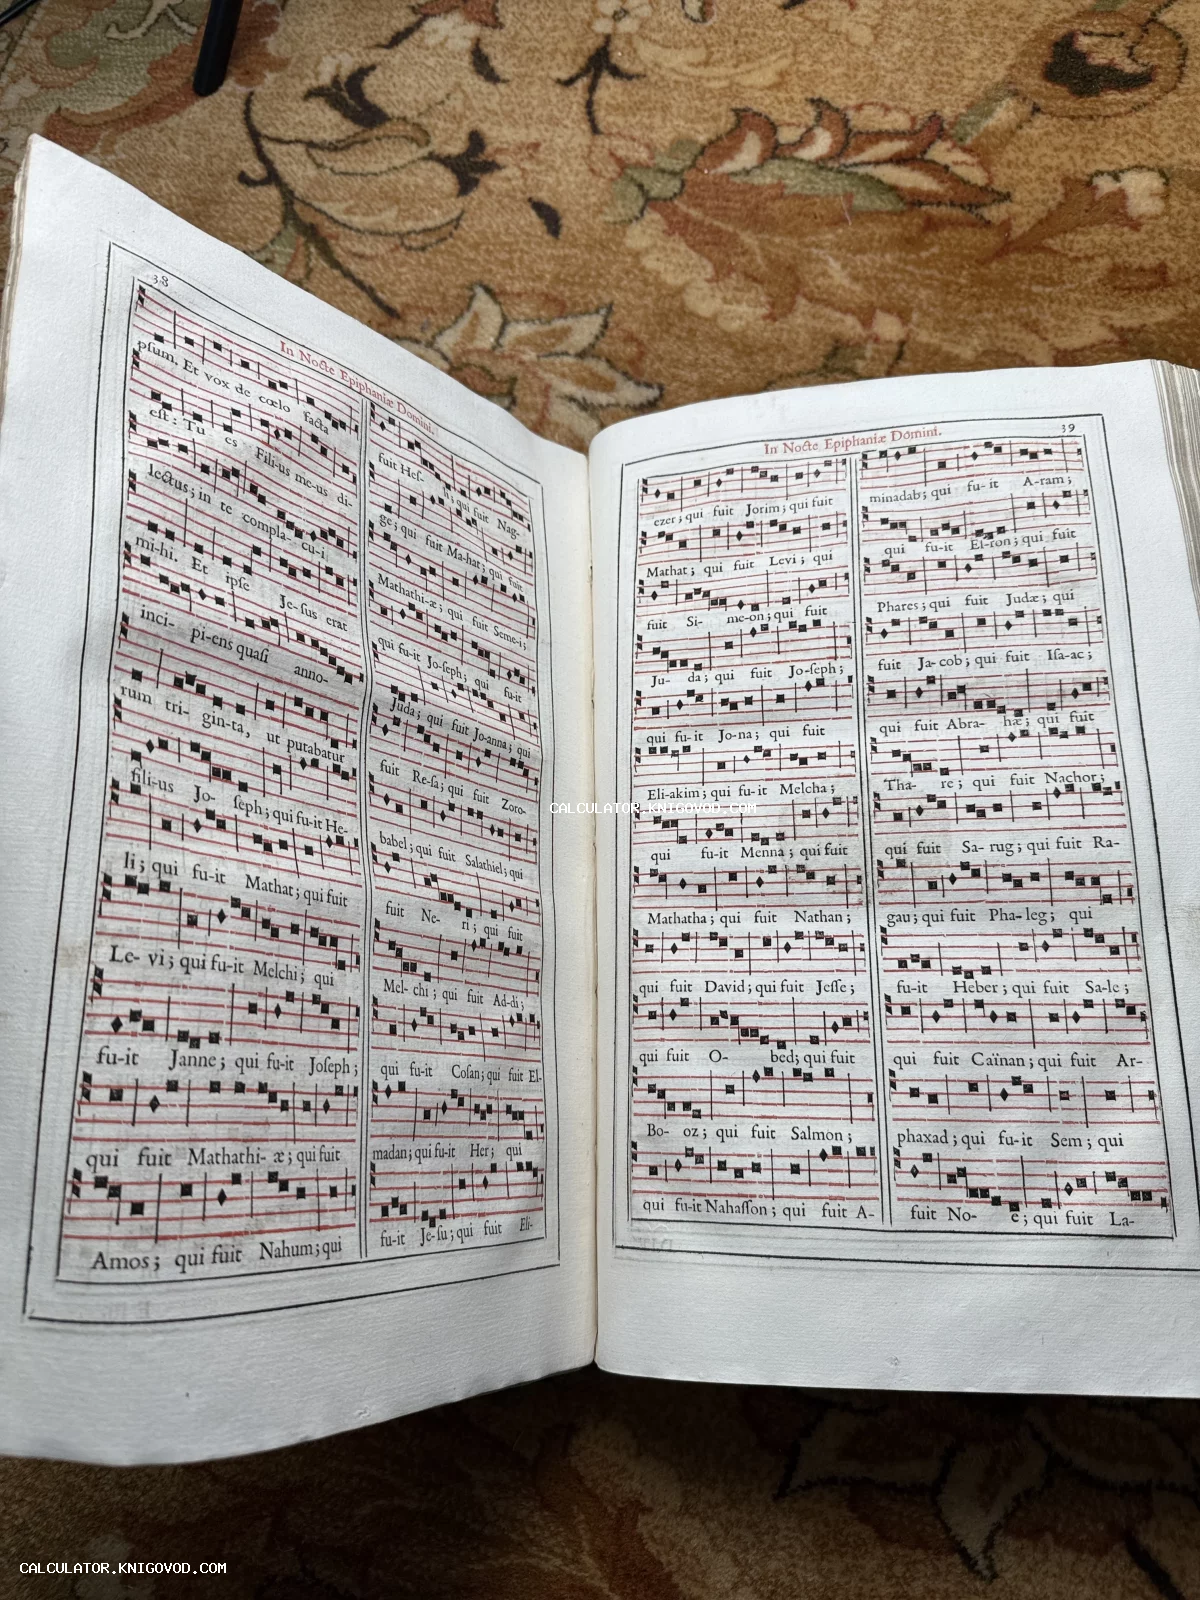 38
In Nocte Epiphaniæ Domini.
pſum. Et vox de cœlo facta
eſt : Tu es Filius me-us di-
lectus; in te compla- cu-i
mi-hi. Et ipſe Je-ſus erat
inci- pi-ens quaſi anno-
rum tri- gin-ta, ut putabatur
fili-us Jo- ſeph; qui fu-it He-
li; qui fu-it Mathat; qui fuit
Le- vi; qui fu-it Melchi; qui
fu-it Janne; qui fu-it Joſeph;
qui fuit Mathathi- æ; qui fuit
Amos; qui fuit Nahum; qui
fuit Heſ- li; qui fuit Nag-
ge; qui fuit Ma-hat; qui fuit
Mathathi-æ; qui fuit Seme-i;
qui fu-it Jo-ſeph; qui fu-it
Juda; qui fuit Jo-anna; qui
fuit Re-ſa; qui fuit Zoro-
babel; qui fuit Salathiel; qui
fuit Ne- ri; qui fuit
Mel- chi; qui fuit Ad-di;
qui fu-it Coſan; qui fuit El-
madan; qui fu-it Her; qui
fu-it Je-ſu; qui fuit Eli-
In Nocte Epiphaniæ Domini.
39
ezer; qui fuit Jorim; qui fuit
Mathat; qui fuit Levi; qui
fuit Si- me-on; qui fuit
Ju- da; qui fuit Jo-ſeph;
qui fu-it Jo-na; qui fuit
Eli-akim; qui fu-it Melcha;
qui fu-it Menna; qui fuit
Mathatha; qui fuit Nathan;
qui fuit David; qui fuit Jeſſe;
qui fuit O- bed; qui fuit
Bo- oz; qui fuit Salmon;
qui fu-it Nahaſſon; qui fuit A-
minadab; qui fu-it A-ram;
qui fu-it Eſ-ron; qui fuit
Phares; qui fuit Judæ; qui
fuit Ja-cob; qui fuit Iſa-ac;
qui fuit Abra- hæ; qui fuit
Tha- re; qui fuit Nachor;
qui fuit Sa-rug; qui fuit Ra-
gau; qui fuit Pha-leg; qui
fu-it Heber; qui fuit Sa-le;
qui fuit Caïnan; qui fuit Ar-
phaxad; qui fu-it Sem; qui
fuit No- e; qui fuit La-
CALCULATOR.KNIGOVOD.COM
CALCULATOR.KNIGOVOD.COM